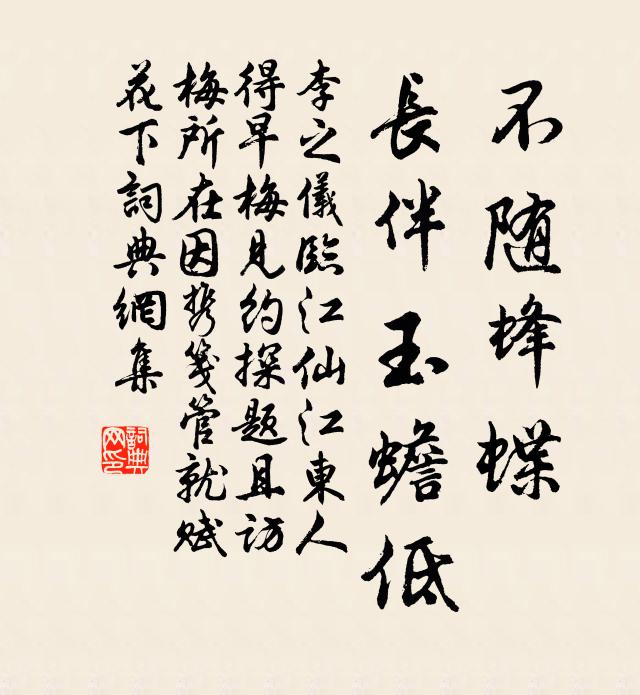 不随蜂蝶
長伴玉蟾低
李之儀臨江仙江東人
得早梅見約探題且訪
梅所在因携箋管就賦
花下詞典網集
詞典
网印